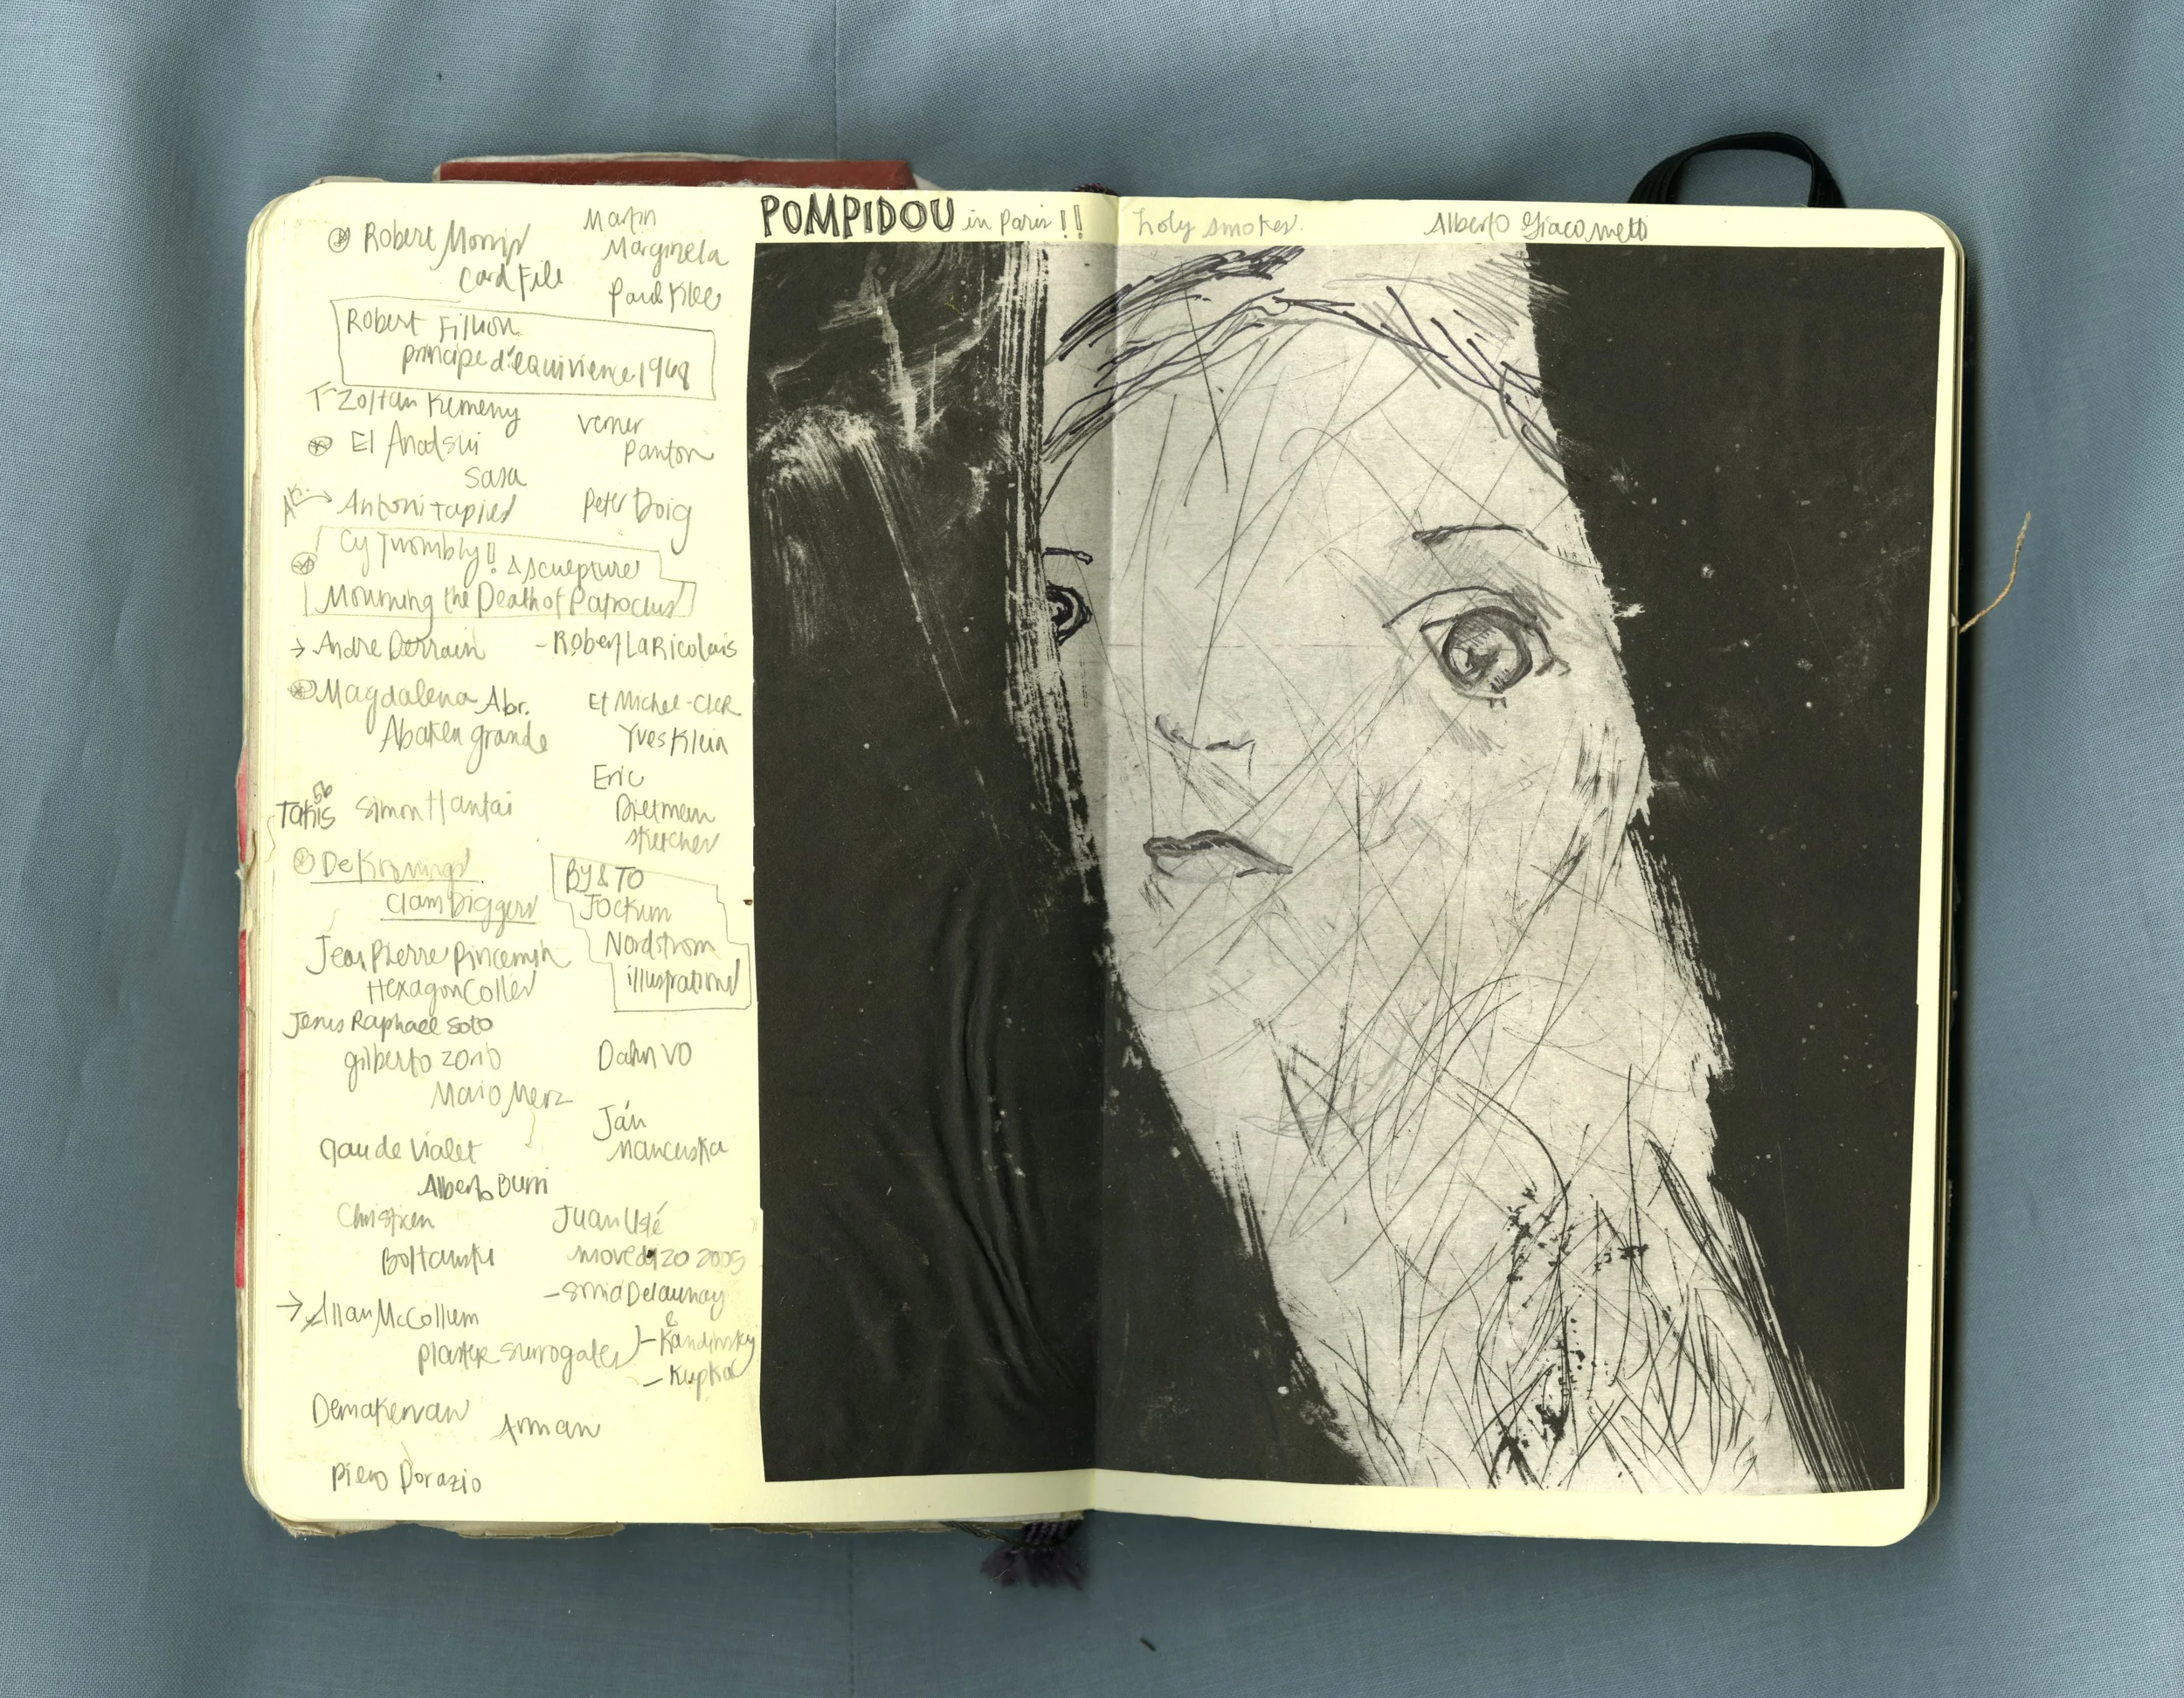 Robert Morris
Card File
Martin
Marginela
Paul Klee
Robert Filliou
principe d'equivience 1968
Zoltan Kemeny
El Anatsui
Sasa
Verner
Panton
Antoni Tapies
Peter Doig
Cy Twombly! & sculpture
Mourning the Death of Patroclus
→ Andre Derrain
- Robert LaRicolais
Magdalena Abr.
Abaken grande
Et Michel-
Yves Klein
Takis
56
Simon Hantai
Eric
Dietmann
sketches
De Konings
Clam Diggers
BY & TO
Jockum
Nordstrom
illustrations
Jean Pierre Pincemin
Hexagon Colles
Jesus Raphael Soto
gilberto Zorio
Mario Merz
Dahn VO
Ján
Mancuska
Claude Vialet
Alberto Burri
Christien
Boltanski
Juan Uslé
moved 20 2005
→ Allan McCollum
plaster surrogates
- Sonia Delaunay
&
- Kandinsky
- Kupka
Demakervan
Arman
Piero Dorazio
POMPIDOU in Paris!!
holy smokes.
Alberto Giacometti